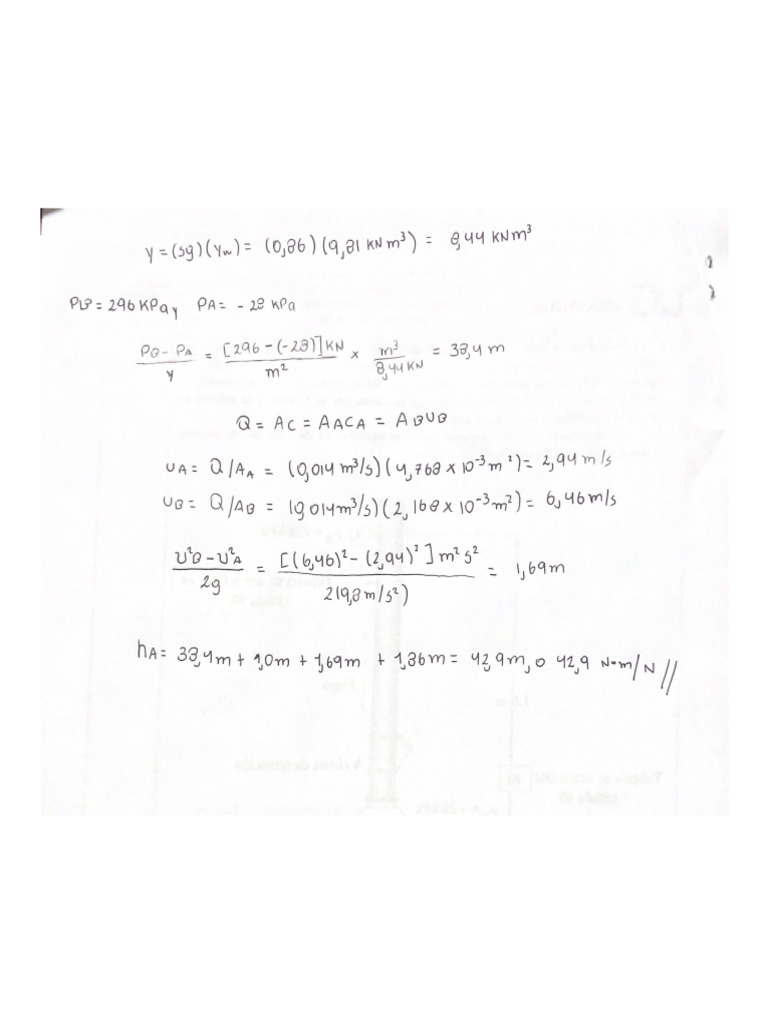 γ = (sg)(γw) = (0,86)(9,81 KN m³) = 8,44 KNm³
PB = 296 KPa y PA = - 28 KPa
PB - PA / γ = [296 - (-28)] KN / m² × m³ / 8,44 KN = 38,4 m
Q = AC = AACA = ABUB
UA = Q/AA = (0,014 m³/s)(4,768 × 10⁻³ m²) = 2,94 m/s
UB = Q/AB = (0,014 m³/s)(2,168 × 10⁻³ m²) = 6,46 m/s
U²B - U²A / 2g = [(6,46)² - (2,94)²] m² s² / 2(9,8 m/s²) = 1,69 m
hA = 38,4 m + 1,0 m + 1,69 m + 1,86 m = 42,9 m, o 42,9 N·m/N //